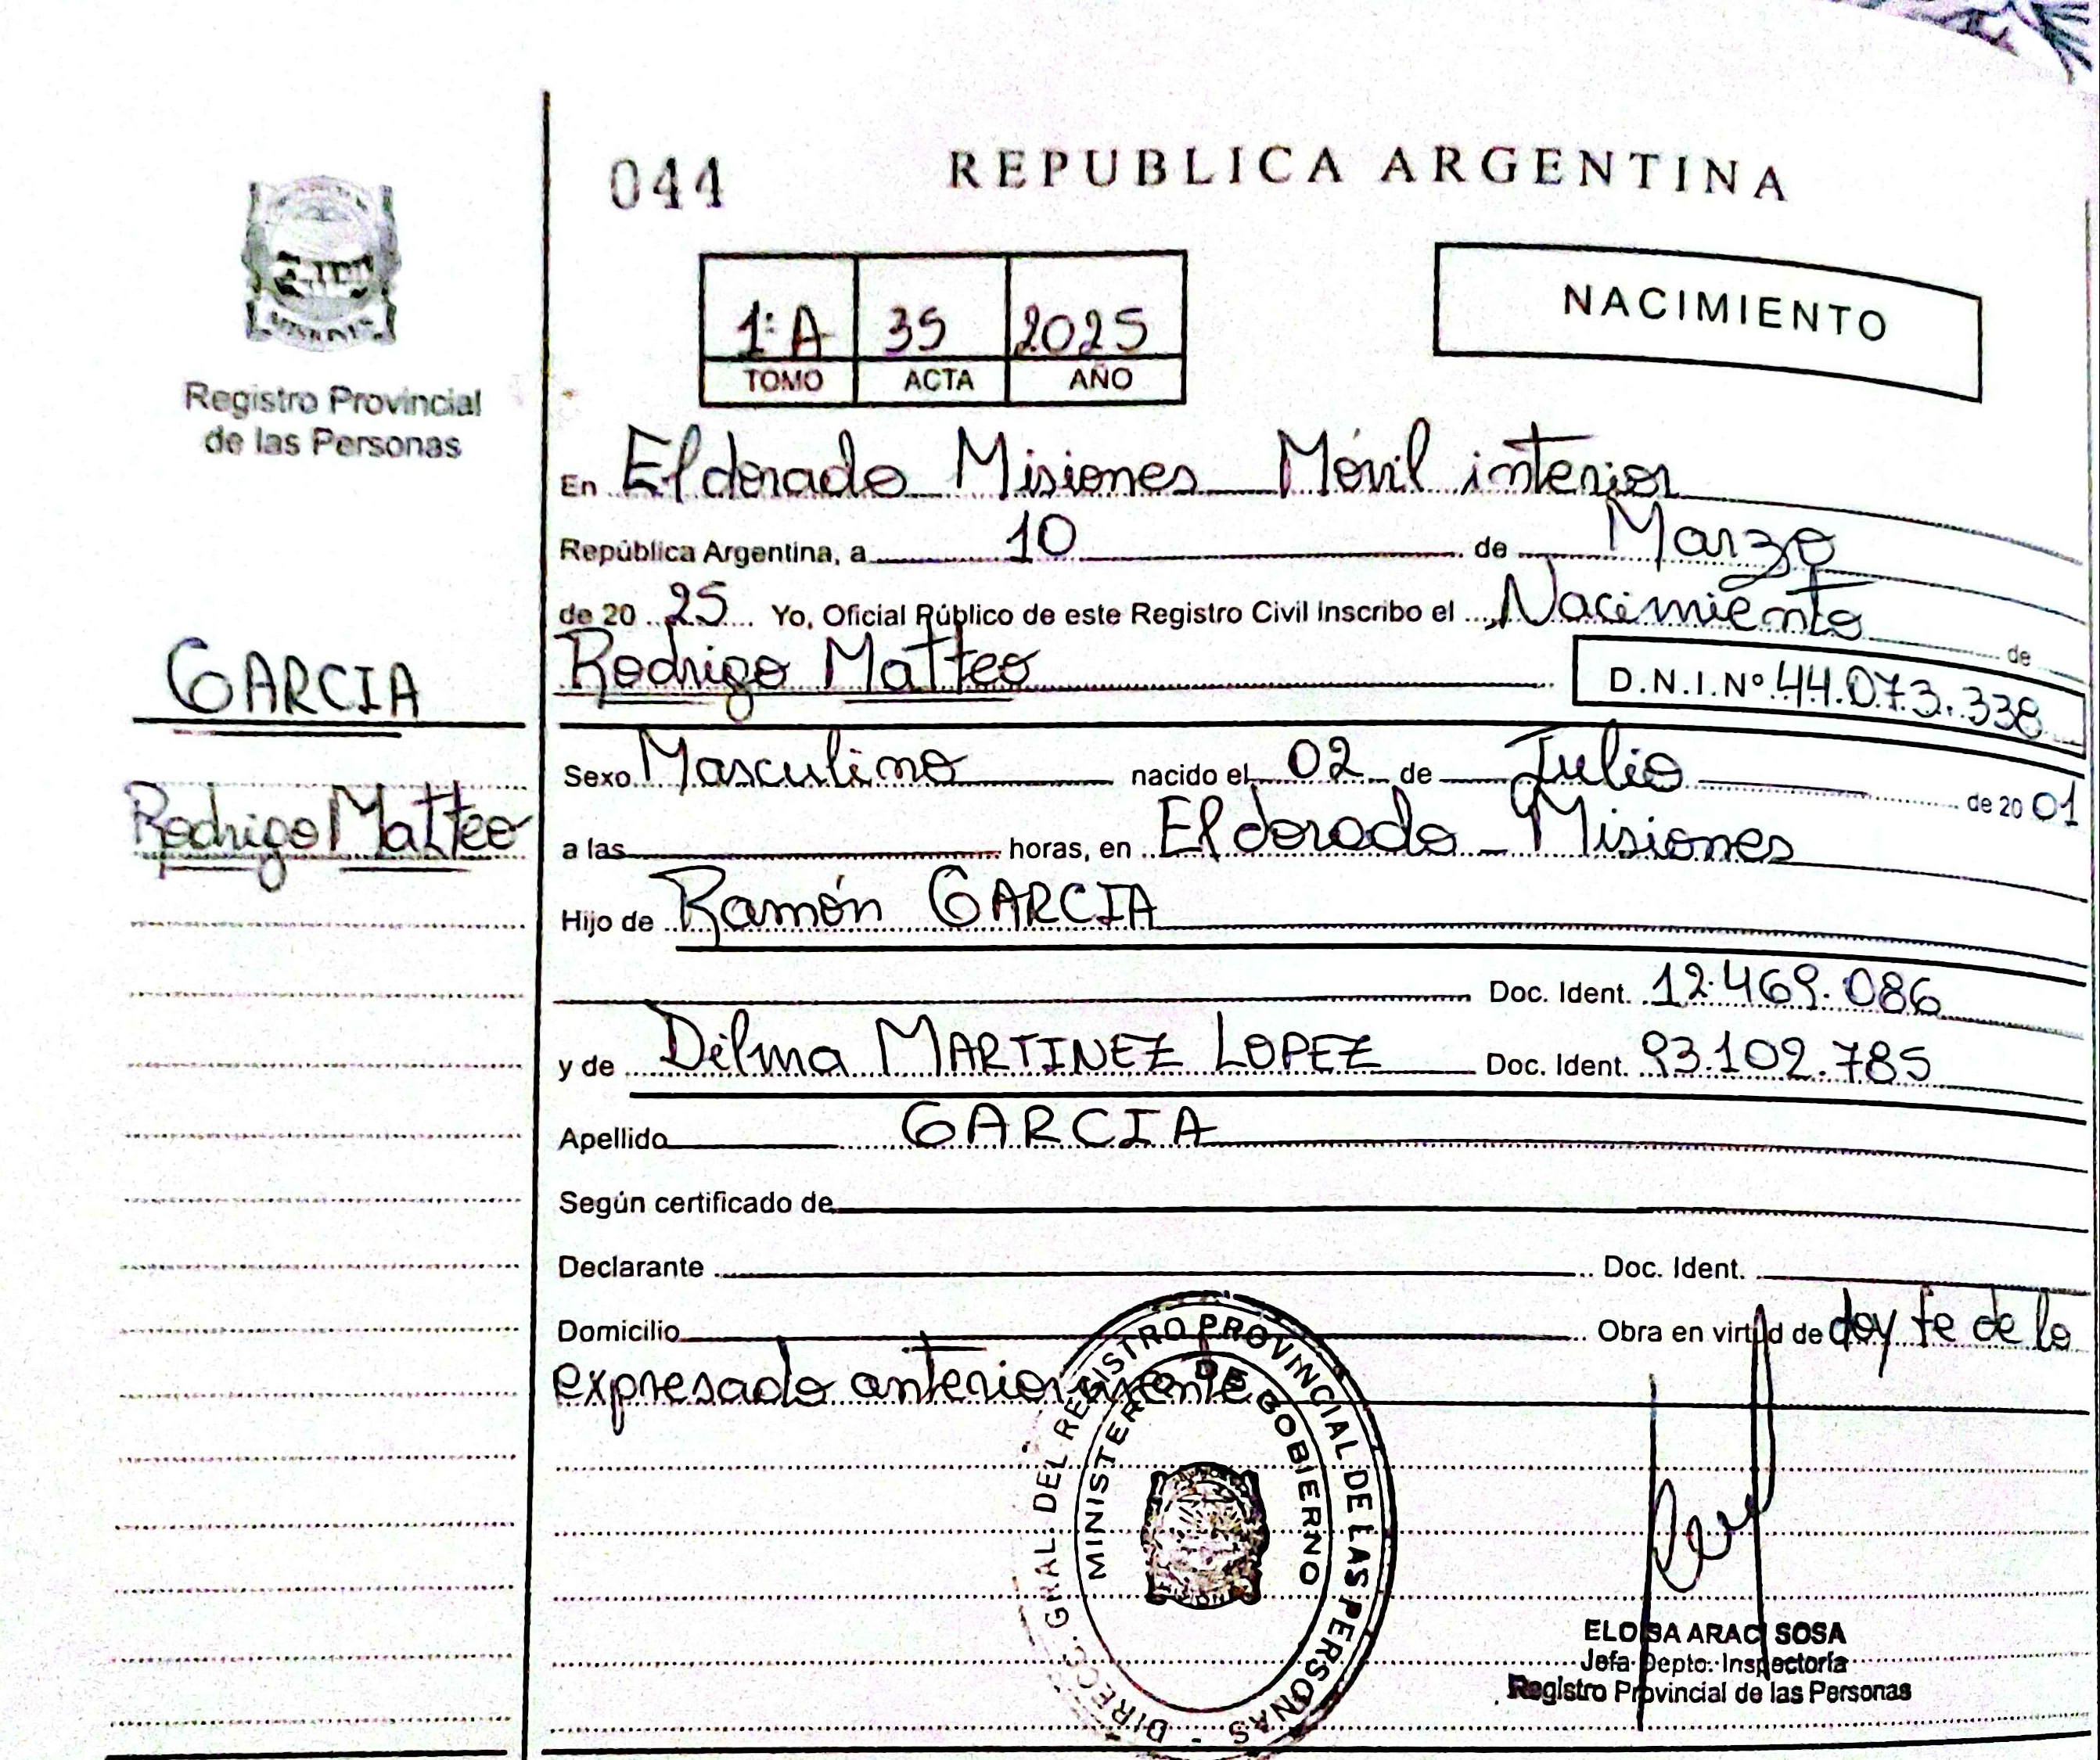 044
REPUBLICA ARGENTINA
NACIMIENTO
1ª A 35 2025
TOMO ACTA AÑO
Registro Provincial
de las Personas
GARCIA
Rodrigo Matteo
En Eldorado Misiones Móvil interior
República Argentina, a 10 de Marzo
de 20 25 Yo, Oficial Público de este Registro Civil Inscribo el Nacimiento de
Rodrigo Matteo D.N.I.Nº 44.073.338
Sexo Masculino nacido el 02 de Julio de 20 01
a las horas, en Eldorado - Misiones
Hijo de Ramón GARCIA
Doc. Ident. 12.469.086
y de Délma MARTINEZ LOPEZ Doc. Ident. 93.102.785
Apellido GARCIA
Según certificado de
Declarante Doc. Ident.
Domicilio Obra en virtud de doy fe de lo
expresado anteriormente
DIRECC. GRAL. DEL REGISTRO PROVINCIAL DE LAS PERSONAS -
MINISTERIO DE GOBIERNO
ELOISA ARACI SOSA
Jefa Depto. Inspectoría
Registro Provincial de las Personas